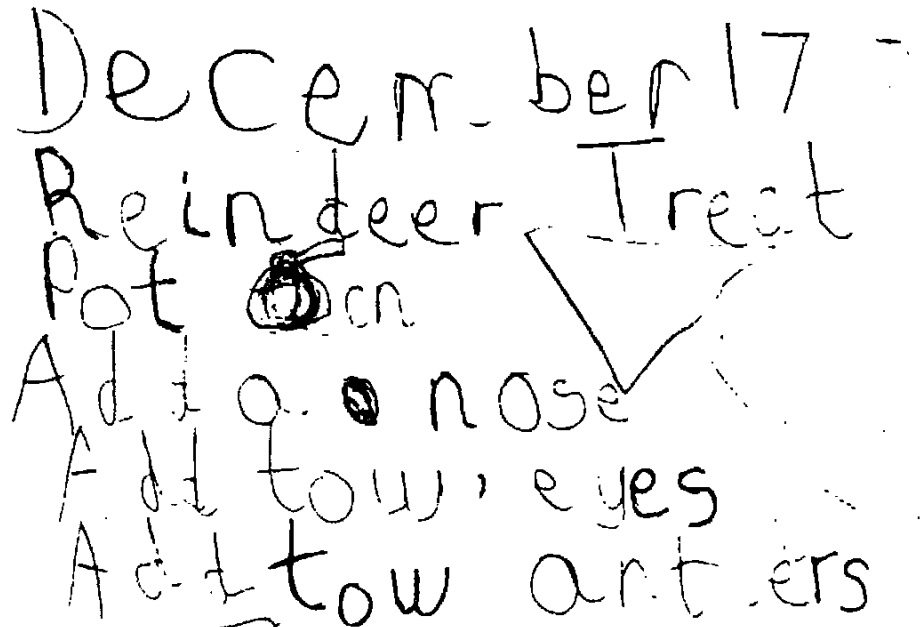 December 17
Reindeer Treat
Pot on
Add a nose
Add tow eyes
Add tow anters